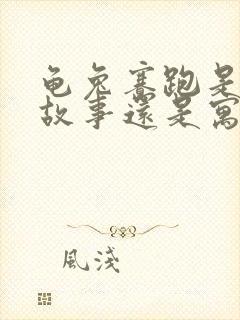 龟兔赛跑是
故事还是寓
風淺